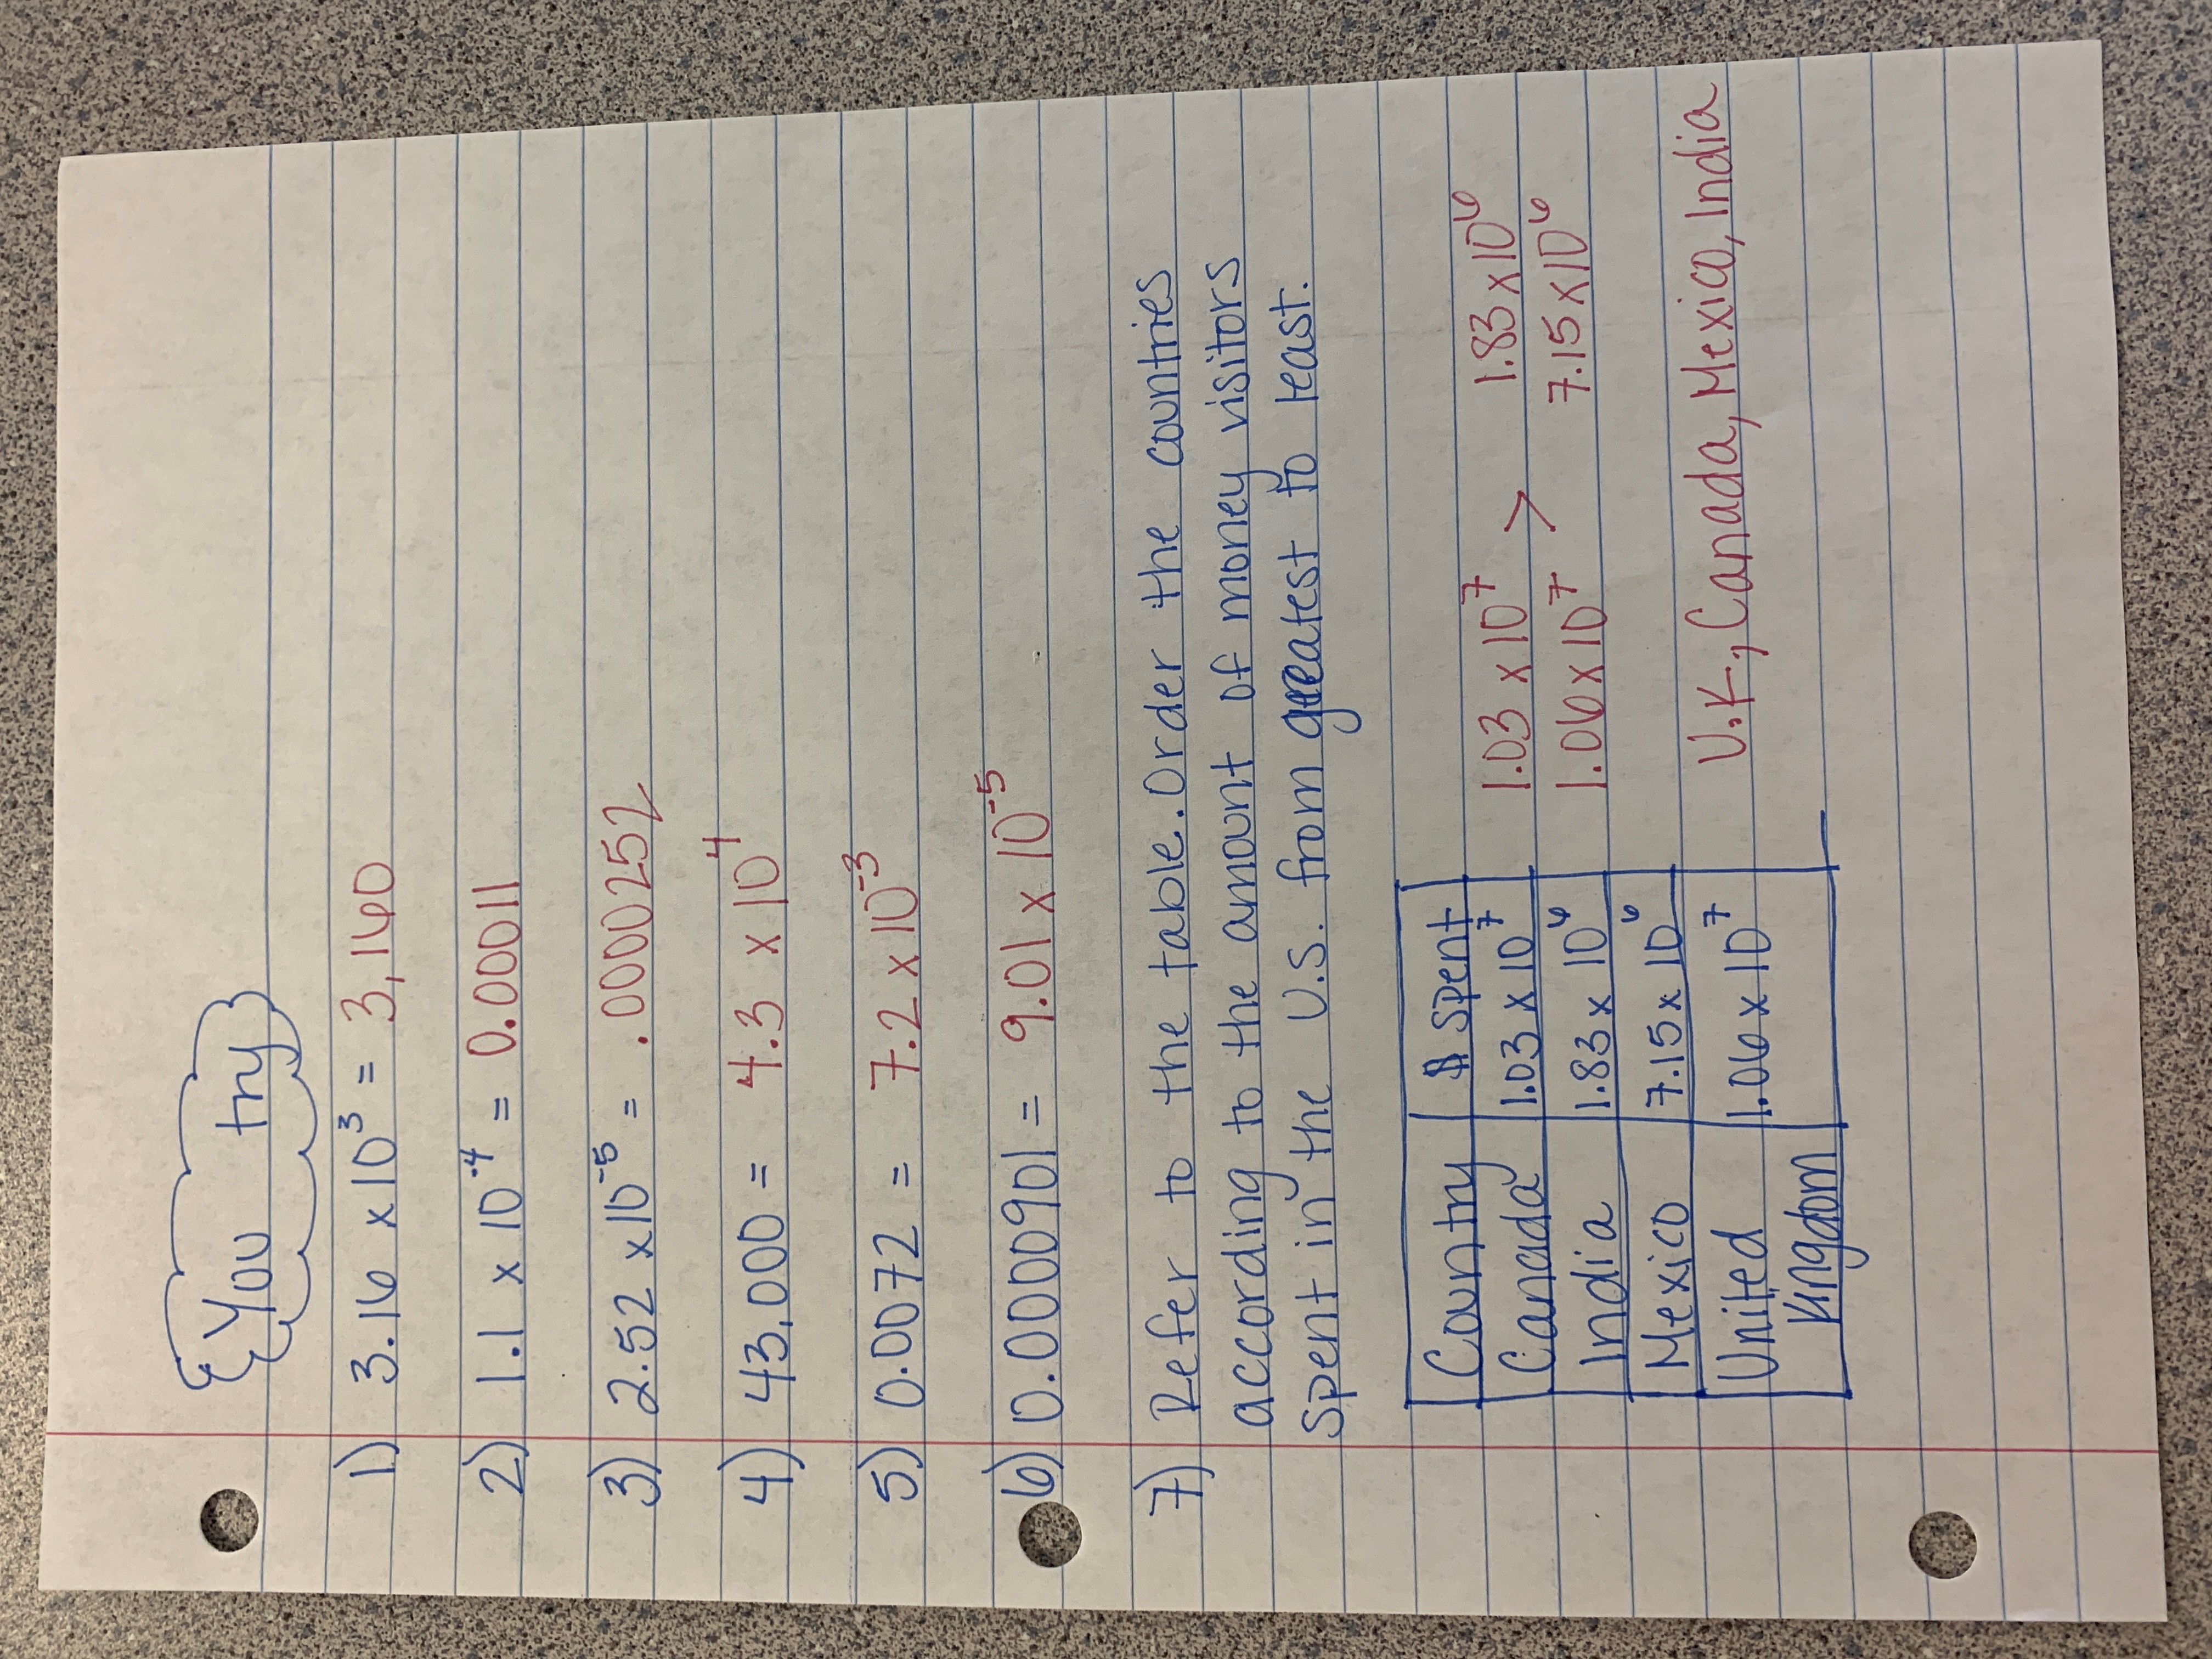 You try
1) 3.16 x 10³ = 3,160
2) 1.1 x 10⁻⁴ = 0.00011
3) 2.52 x 10⁻⁵ = .0000252
4) 43,000 = 4.3 x 10⁴
5) 0.0072 = 7.2 x 10⁻³
6) 0.0000901 = 9.01 x 10⁻⁵
7) Refer to the table. Order the countries
according to the amount of money visitors
spent in the U.S. from greatest to least.
Country $ spent
Canada 1.03 x 10⁷
India 1.83 x 10⁶
Mexico 7.15 x 10⁶
United Kingdom 1.06 x 10⁷
1.03 x 10⁷ > 1.83 x 10⁶
1.06 x 10⁷ 7.15 x 10⁶
U.K., Canada, Mexico, India